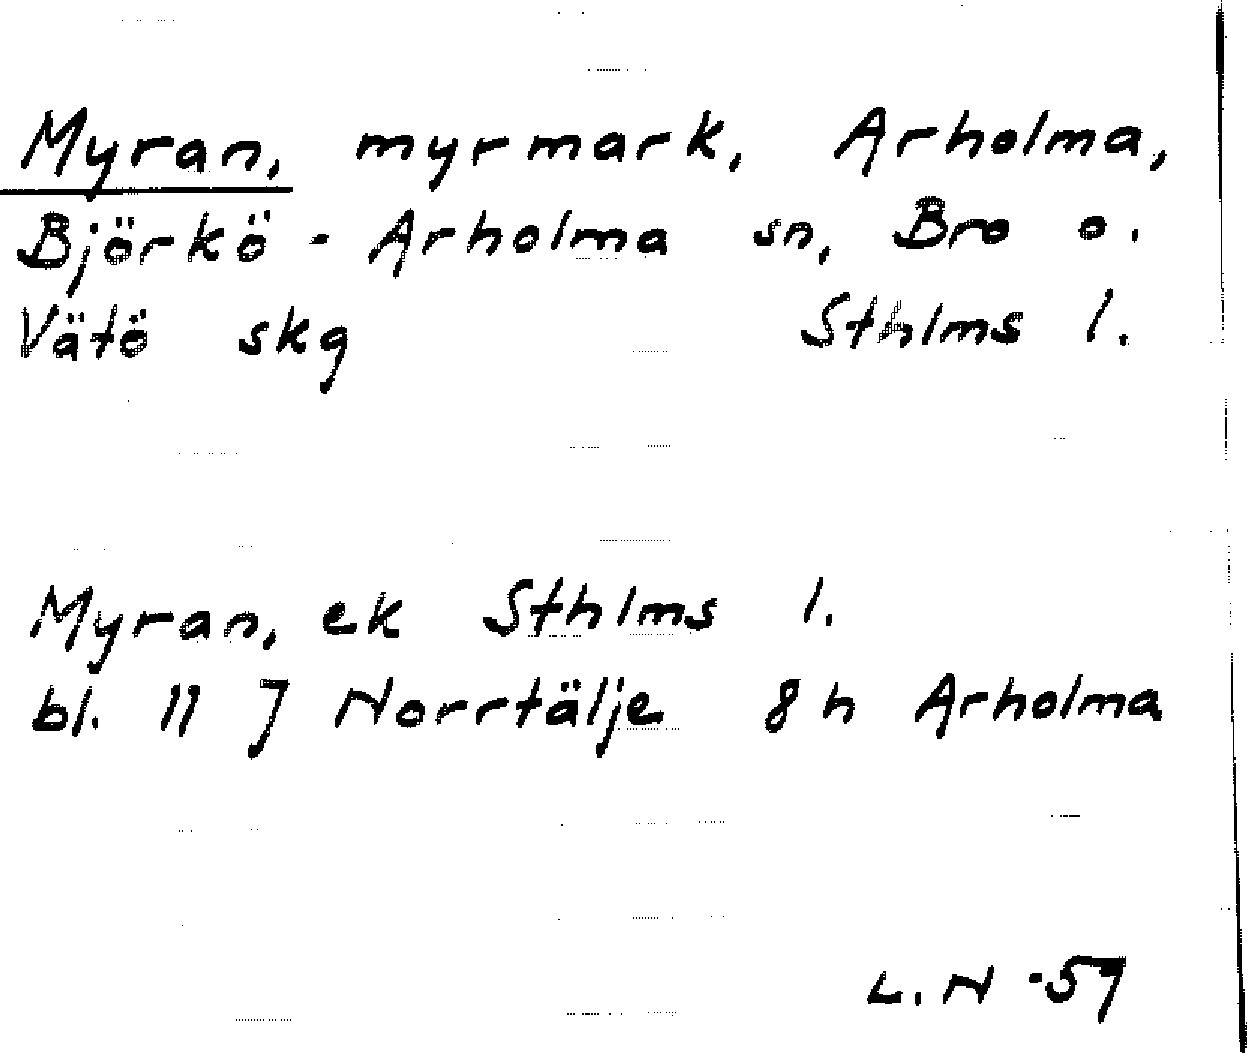 Myran, myrmark, Arholma,
Björkö - Arholma sn, Bro o.
Vätö skg Sthlms l.
Myran, ek Sthlms l.
bl. 11 J Norrtälje 8h Arholma
L. N -57